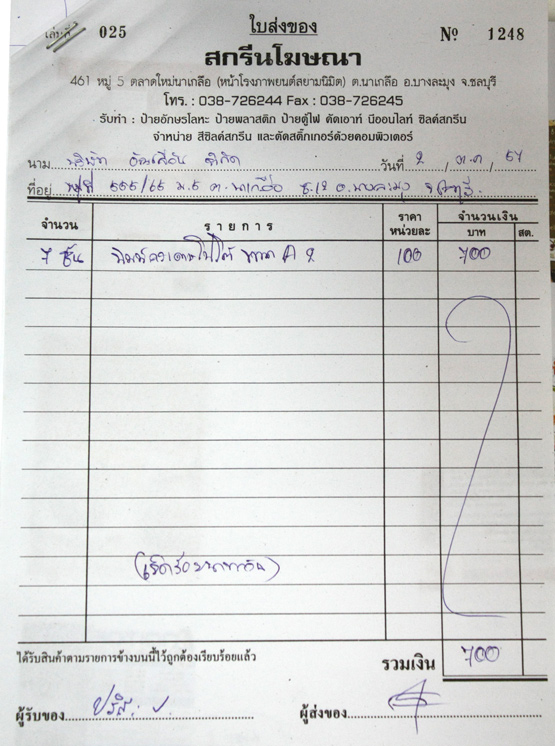 เล่มที่ 025 ใบส่งของ Nº 1248
สกรีนโฆษณา
461 หมู่ 5 ตลาดใหม่นาเกลือ (หน้าโรงภาพยนต์สยามนิมิต) ต.นาเกลือ อ.บางละมุง จ.ชลบุรี
โทร. : 038-726244 Fax : 038-726245
รับทำ : ป้ายอักษรโลหะ ป้ายพลาสติก ป้ายตู้ไฟ คัตเอาท์ นีออนไลท์ ซิลค์สกรีน
จำหน่าย สีซิลค์สกรีน และตัดสติ๊กเกอร์ด้วยคอมพิวเตอร์
นาม บริษัท จำกัด วันที่ 2 / ต.ค / 57
ที่อยู่ 555/65 ม.5 ต.นาเกลือ ซ.12 อ.บางละมุง จ.ชลบุรี
จำนวน รายการ ราคาหน่วยละ จำนวนเงิน
บาท สต.
7 ชิ้น พิมพ์กระดาษโฟโต้ ขนาด A 2 100 700
ได้รับสินค้าตามรายการข้างบนนี้ไว้ถูกต้องเรียบร้อยแล้ว รวมเงิน 700
ผู้รับของ ผู้ส่งของ